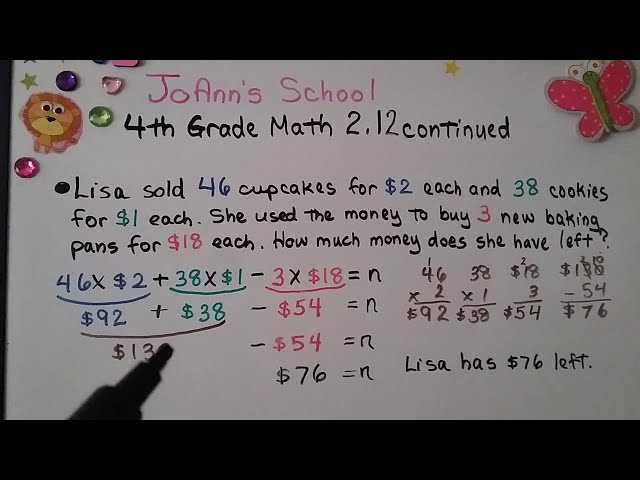 JoAnn's School
4th Grade Math 2.12 continued
•Lisa sold 46 cupcakes for $2 each and 38 cookies
for $1 each. She used the money to buy 3 new baking
pans for $18 each. How much money does she have left?
46 x $2 + 38 x $1 - 3 x $18 = n
$92 + $38 - $54 = n
$13 - $54 = n
$76 = n
46 38 $18
x 2 x 1 3 - 54
$92 $38 $54 $76
Lisa has $76 left.